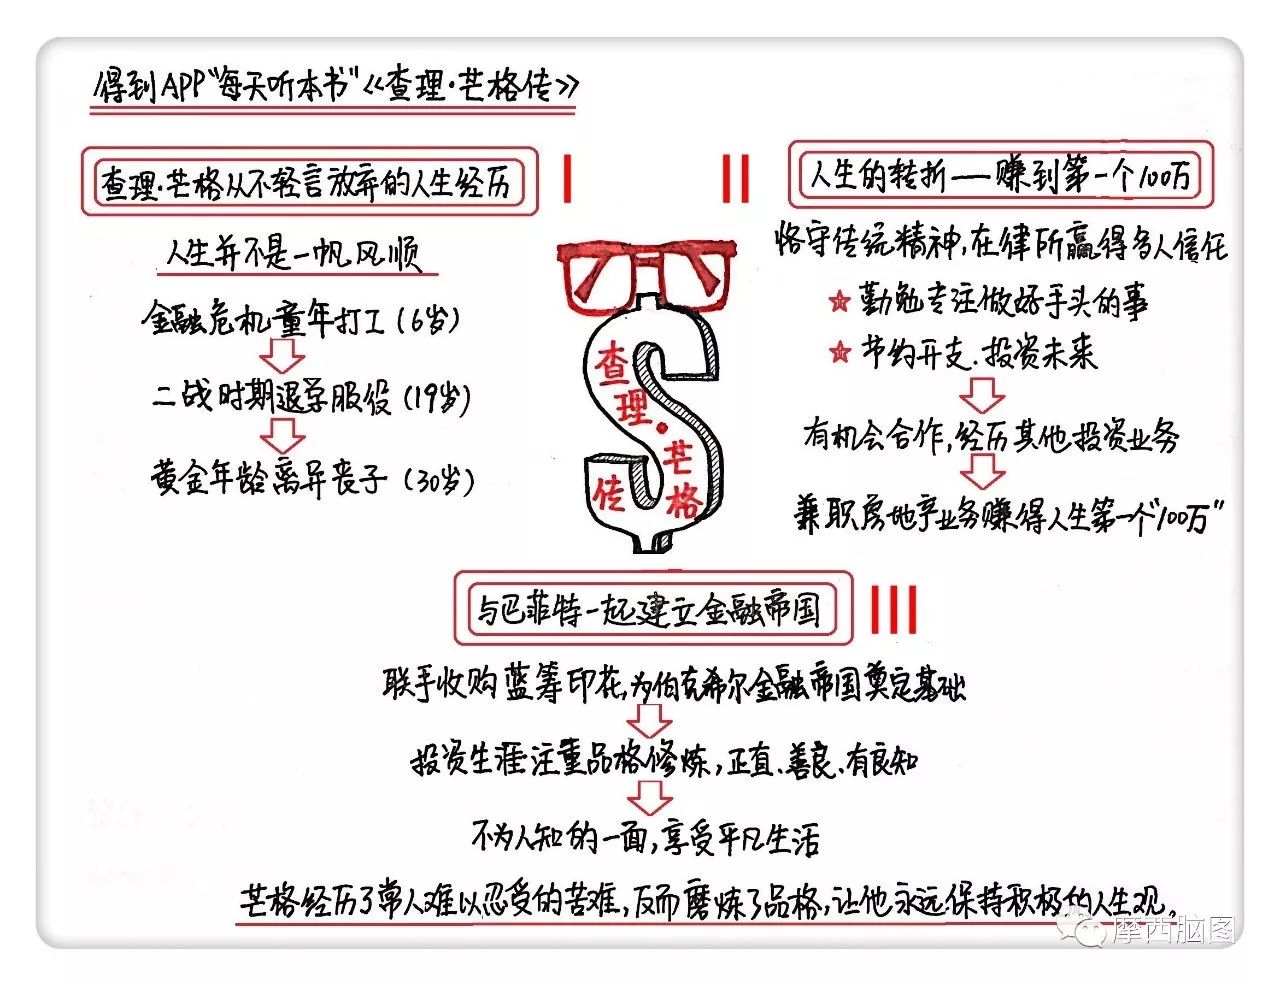 得到APP"每天听本书"《查理·芒格传》
查理·芒格从不轻言放弃的人生经历
I
人生并不是一帆风顺
金融危机童年打工(6岁)
二战时期退学服役(19岁)
黄金年龄离异丧子(30岁)
查理·芒格传
II
人生的转折——赚到第一个100万
恪守传统精神,在律所赢得多人信任
勤勉专注做好手头的事
节约开支.投资未来
有机会合作,经历其他投资业务
兼职房地产业务赚得人生第一个"100万"
与巴菲特一起建立金融帝国
III
联手收购蓝筹印花,为伯克希尔金融帝国奠定基础
投资生涯注重品格修炼,正直、善良、有良知
不为人知的一面,享受平凡生活
芒格经历了常人难以忍受的苦难,反而磨炼了品格,让他永远保持积极的人生观。
摩西脑图